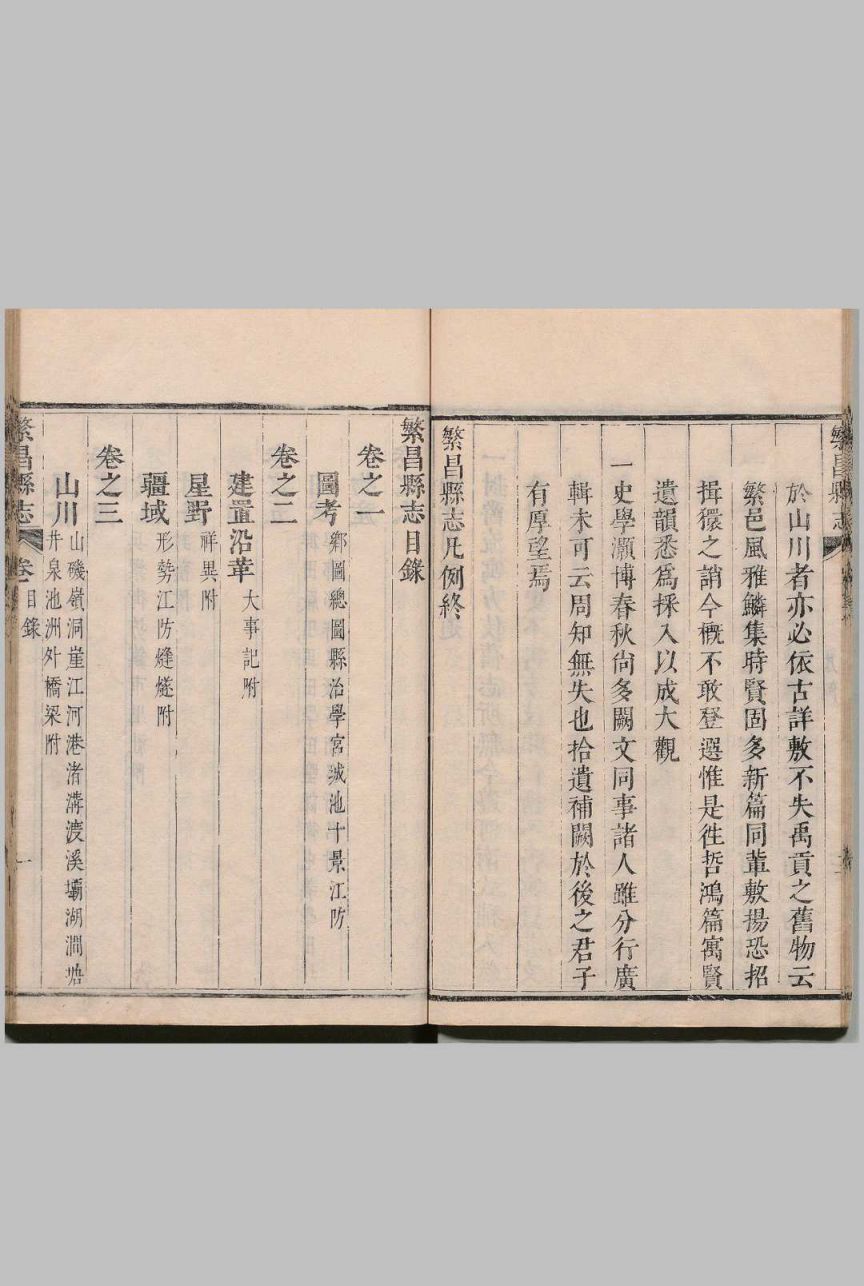 繁昌縣志
於山川者亦必依古詳敷不失禹貢之舊物云
繁邑風雅鱗集時賢固多新篇同軰敷揚恐招
揖獧之誚今概不敢登選惟是徃哲鴻篇寓賢
遺韻悉爲採入以成大觀
一史學灝博春秋尙多闕文同事諸人雖分行廣
輯未可云周知無失也拾遺補闕於後之君子
有厚望焉
繁昌縣志凡例終
繁昌縣志目錄
卷之一
圖考 鄉圖總圖縣治學宮城池十景江防
卷之二
建置沿革 大事記附
星野 祥異附
疆域 形勢江防烽燧附
卷之三
山川 山磯嶺洞崖江河港渚溝渡溪壩湖澗塘
井泉池洲外橋梁附
繁昌縣志 卷 目錄 一